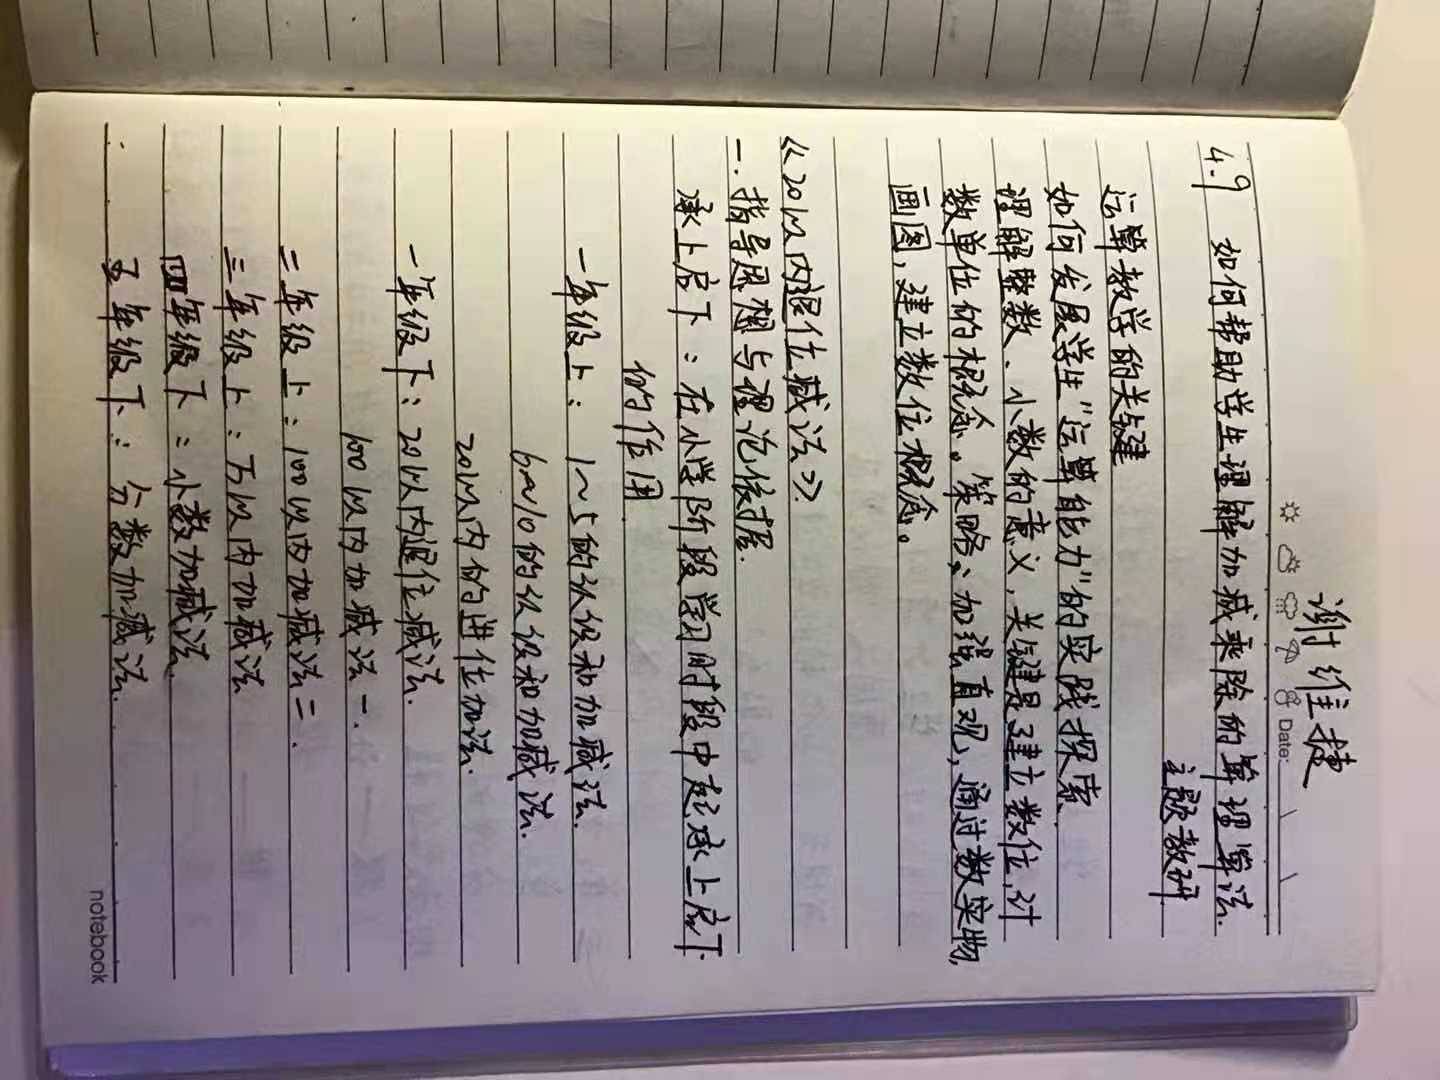 谢维捷
Date:
4.9 如何帮助学生理解加减乘除的算理算法.
主题教研
运算教学的关键
如何发展学生"运算能力"的实践探索.
理解整数、小数的意义,关键是建立数位,计
数单位的概念。策略:加强直观,通过数实物,
画图,建立数位概念。
《20以内退位减法》
一.指导思想与理论依据.
承上启下:在小学阶段学习时段中起承上启下
的作用.
一年级上:1~5的认识和加减法.
6~10的认识和加减法.
20以内的进位加法.
一年级下:20以内退位减法.
100以内加减法一.
二年级上:100以内加减法二.
三年级上:万以内加减法
四年级下:小数加减法.
五年级下:分数加减法.
notebook